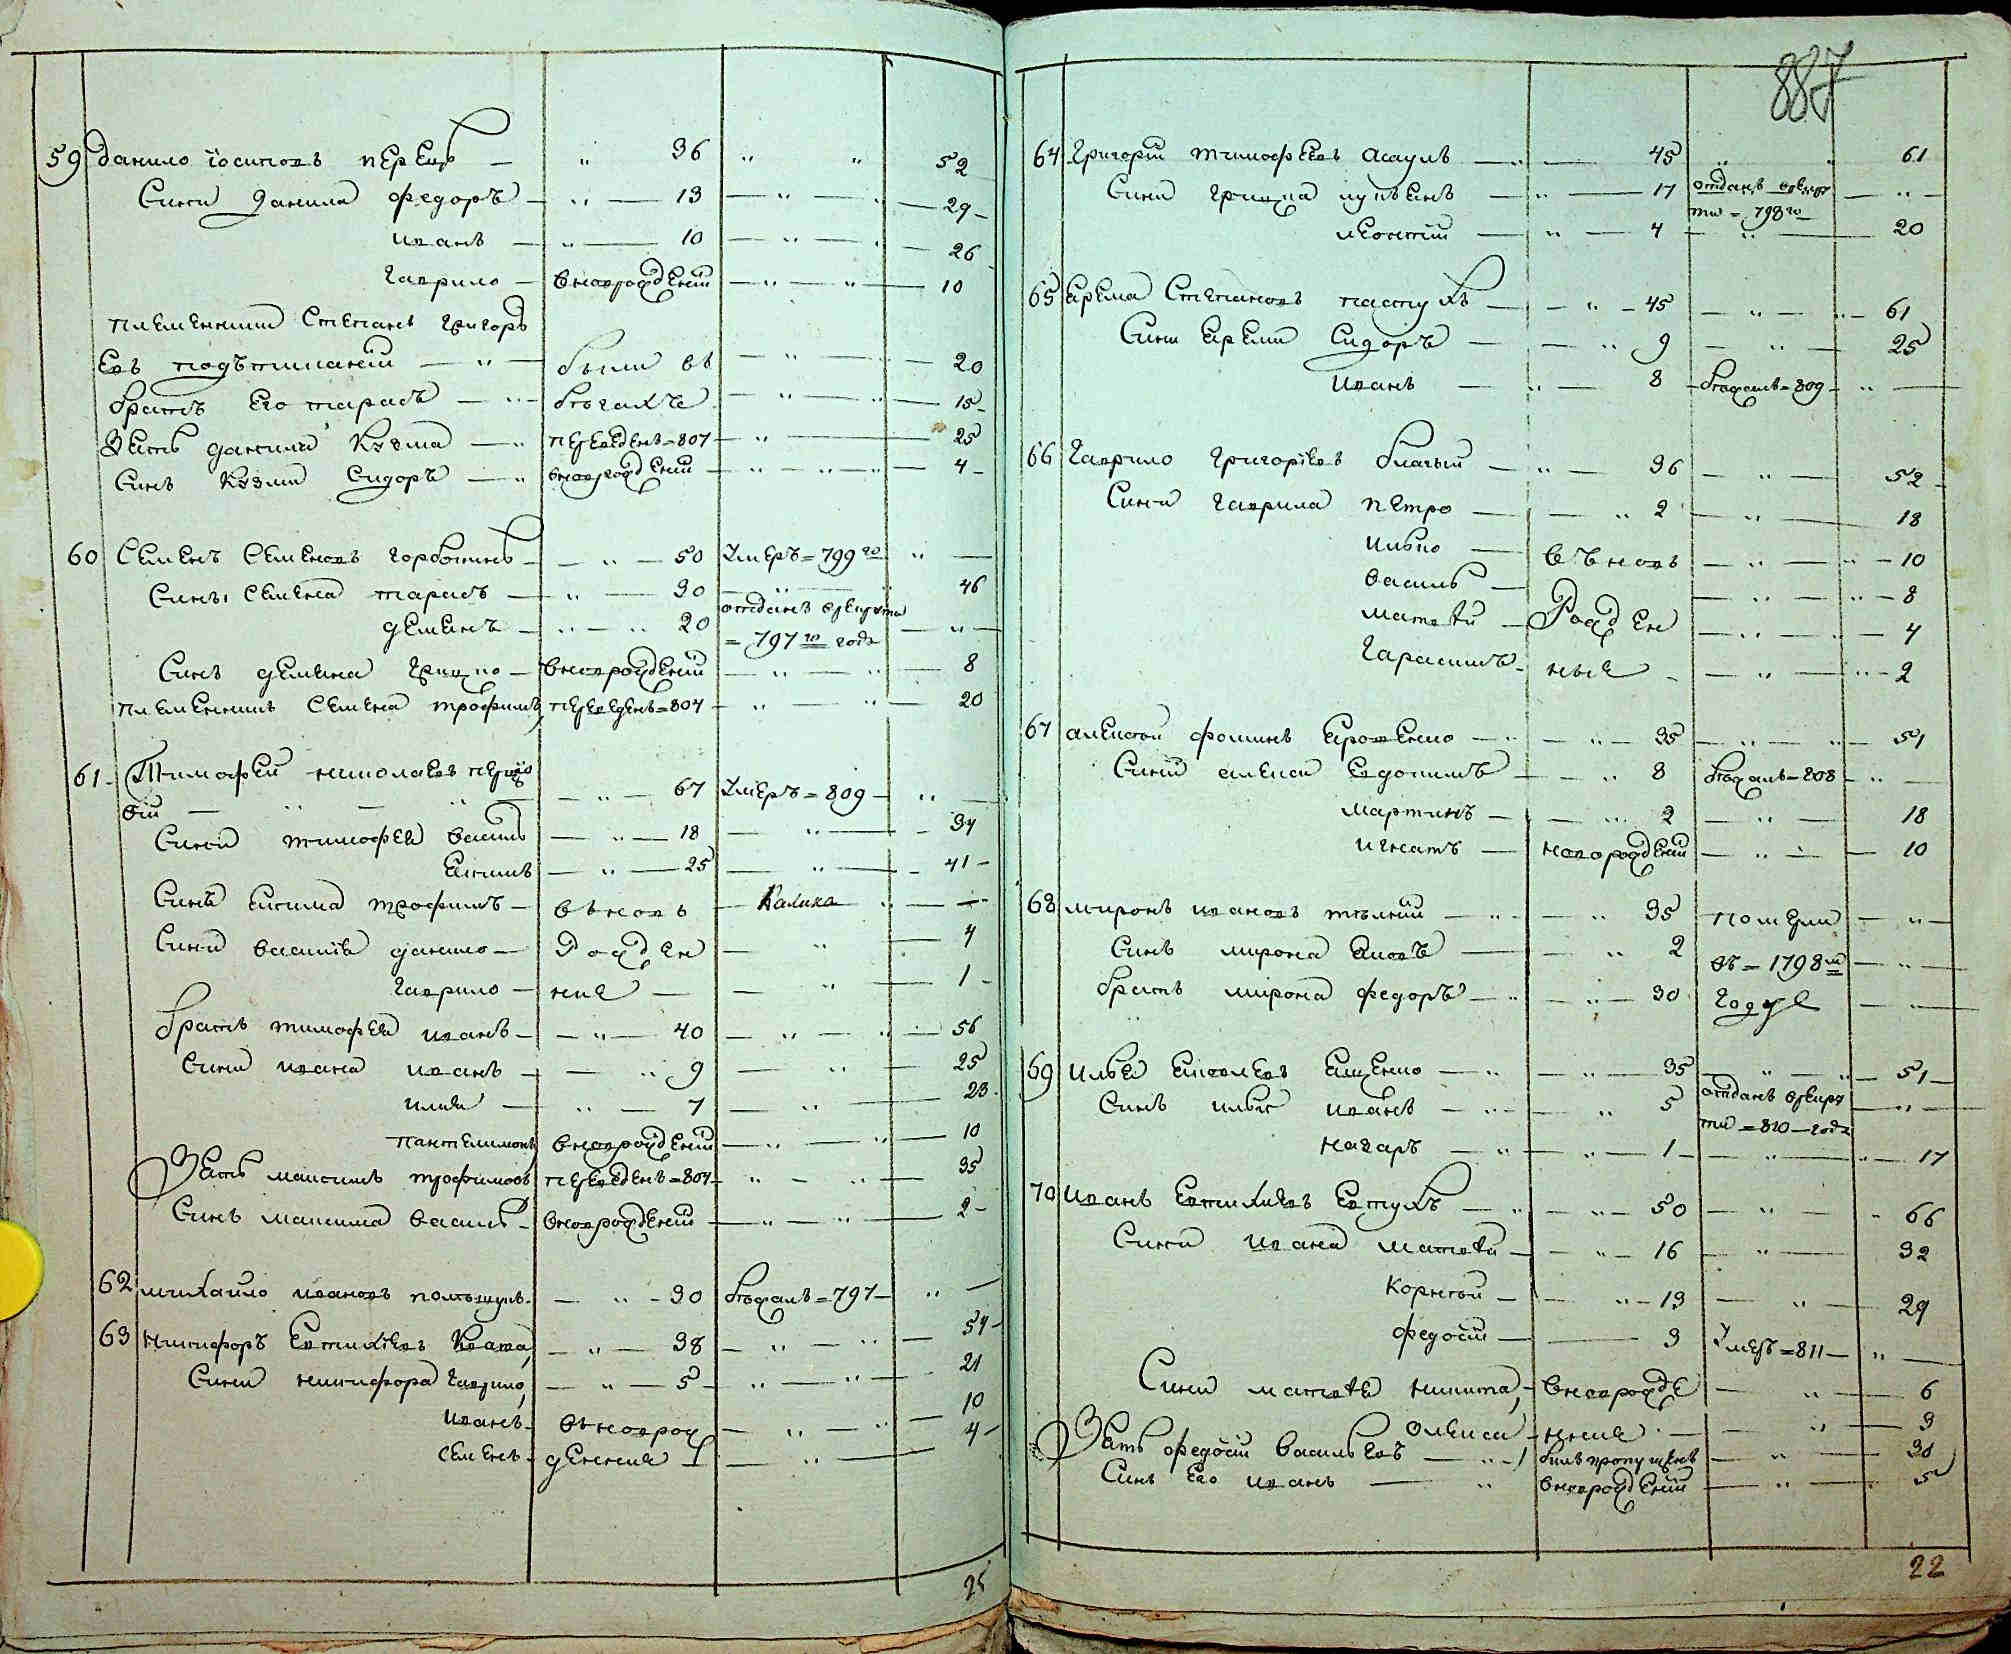 59 Данило Іосиповъ перецъ — „ 36 „ „ 52
Сини Данила Федоръ — „ — 13 — „ — 29
иванъ — „ — 10 — „ — 26
Гаврило — вноврожденій — „ — „ — 10
племенники Степанъ Григорь
евъ — „ — были въ — „ — 20
братъ его тарасъ — „ бѣгахъ — „ — 15
Зять данила Кузма — „ переведенъ = 807 — „ — 25
Синъ Кузми Сидоръ — „ вноврожденій — „ — „ — 4
60 Семенъ Семеновъ — „ — 50 Умеръ = 799 го „ —
Сины Семена тарасъ — „ — 30 — „ 46
демянъ — „ — „ 20 отданъ врекруты — „ —
= 797 го года
Синъ демяна Грицко — вноврожденій — „ — „ 8
племенникъ Семена трофимъ переведенъ = 807 — „ — „ 20
61 Тимофей николаевъ
— „ — 67 Умеръ = 809 — „ —
Сини тимофея василь — „ — 18 — „ — 34
Екимъ — „ — 25 — „ — 41
Синъ екима трофимъ — вѣновь — Калика „ —
Сини василія данило — рожден — „ — 4
Гаврило — ния — „ — 1
братъ тимофея иванъ — „ — 40 — „ — „ — 56
Сини ивана иванъ — „ 9 — „ — 25
илия — „ — 7 — „ — 23
пантелимонъ вноврожденій — „ — „ — 10
Зять максимъ трофимовъ переведенъ = 807 „ — „ — 35
Синъ максима василь — вноврожденій — „ — „ — 2
62 михайло ивановъ — „ — 30 бѣжалъ = 797 — „ —
63 никифоръ Евтихіевъ Квата, — „ — 38 — „ — „ — 54
Сини никифора Гаврило, — „ — 5 — „ — „ — 21
иванъ — вѣноврож — „ — „ — 10
семенъ — дения — „ — 4
25
887
64 Григорій тимофѣевъ асаулъ — „ — 45 „ „ 61
Сини Грицка — „ — 17 отданъ врекру — „ —
ти = 798 го
леонтій — „ — 4 — „ — 20
65 Ерема Степановъ пастухъ — „ — 45 — „ — „ — 61
Сини Еремы Сидоръ — „ 9 — „ — 25
иванъ — „ — 8 — бѣжалъ = 809 — „ —
66 Гаврило Григоріевъ — „ — 36 — „ — 52
Сини Гаврила петро — „ 2 — „ — 18
илько — вѣновь — „ — „ — 10
василь — — „ — „ — 8
матвѣй — рожден — „ — „ — 4
Гарасимъ — ные — „ — „ — 2
67 алексѣй фоминъ — „ — „ — 35 — „ — „ — 51
Сини алексѣя Евдокимъ — „ 8 бѣжалъ = 808 — „ —
мартинъ — „ 2 — „ — 18
игнатъ — новорожденій — „ — 10
68 миронъ ивановъ — „ — „ 35 померли — „ —
Синъ мирона Яковъ — „ 2 въ = 1798 м — „ —
братъ мирона федоръ — „ — „ — 30 годуе — „ —
69 илья Ященко — „ — „ — 35 — „ — „ — 51
Синъ ильи иванъ — „ — „ 5 отданъ врекру — „ —
ти = 810 — года
назаръ — „ — „ — 1 — „ — „ — 17
70 иванъ Евтихиевъ Евтухъ — „ — „ — 50 — „ — „ 66
Сини ивана матвѣй — „ — 16 — „ — 32
Корнѣй — „ — 13 — „ — 29
федосій — 3 Умеръ = 811 — „ —
Сини матвѣя никита, вноврожде — „ — 6
Олекса — нния — „ — 3
Зять федосій васильевъ — „ — билъ пропущенъ — „ — 30
Синъ его иванъ — „ вноврожденій — „ — 5
22